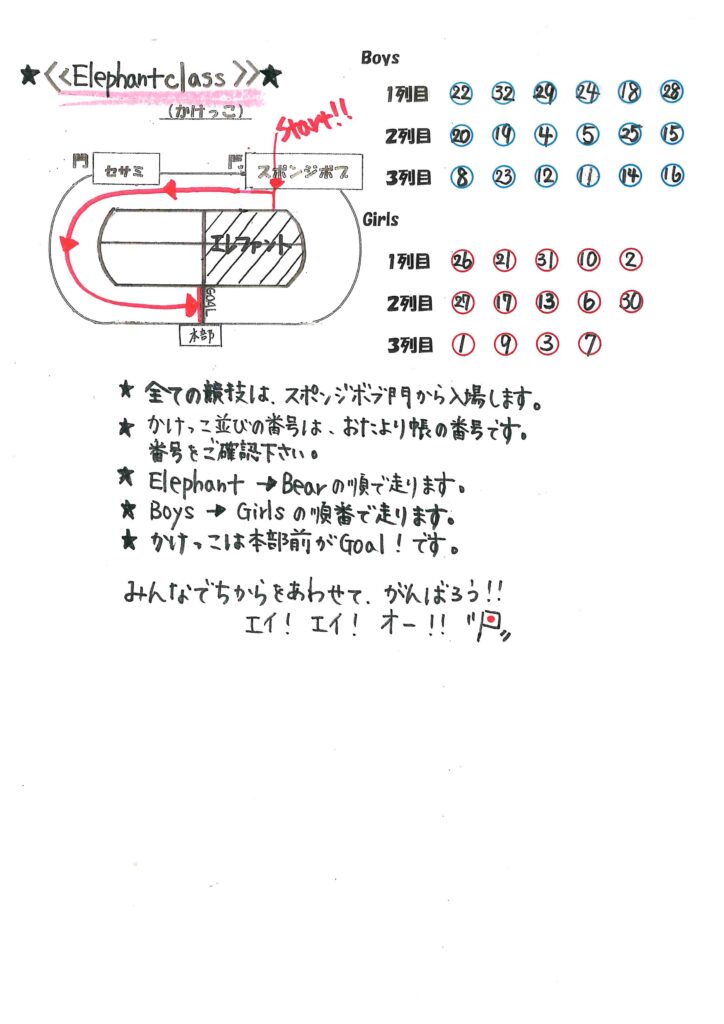 ★《Elephant class》★
(かけっこ)
Start!!
門 セサミ
門 スポンジボブ
エレファント
GOAL
本部
Boys
1列目 22 32 29 24 18 28
2列目 20 19 4 5 25 15
3列目 8 23 12 11 14 16
Girls
1列目 26 21 31 10 2
2列目 27 17 13 6 30
3列目 1 9 3 7
★ 全ての競技は、スポンジボブ門から入場します。
★ かけっこ並びの番号は、おたより帳の番号です。
番号をご確認下さい。
★ Elephant → Bearの順で走ります。
★ Boys → Girlsの順番で走ります。
★ かけっこは本部前がGoal!です。
みんなでちからをあわせて、がんばろう!!
エイ! エイ! オー!!